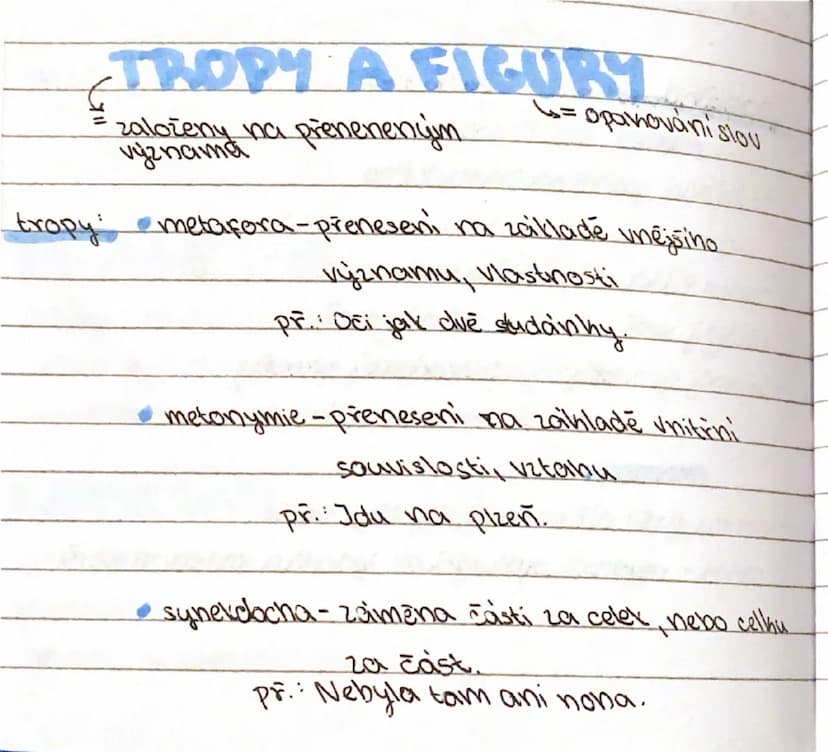 TROPY A FIGURY
= založeny na přeneneným
významá
↳ = opahování slov
tropy: • metafora – přenesení na základě vnějšího
významu, vlastnosti
př.: Oči jak dvě studánky.
• metonymie – přenesení na základě vnitřní
souvislosti, vztahu
př.: Jdu na plzeň.
• synekdocha – záměna části za celek, nebo celku
za část.
př.: Nebyla tam ani noha.